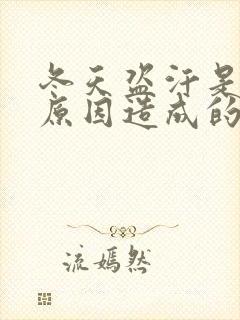 冬天盗汗是
原因造成的
流嫣然